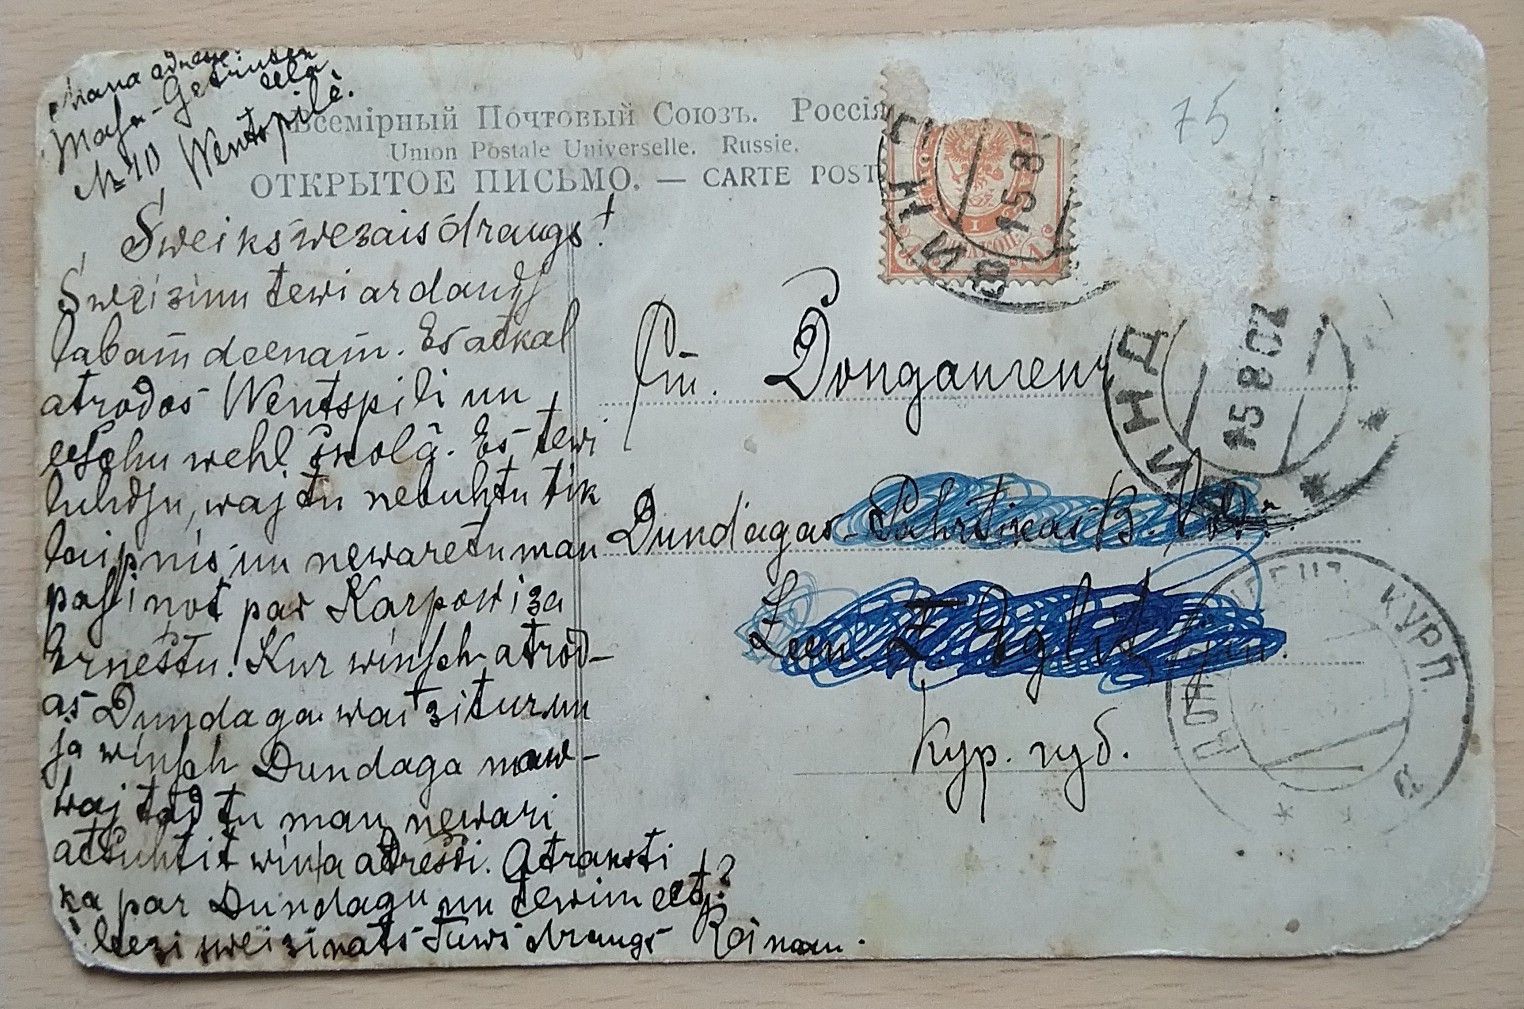 Mana adrese:
Masa-Getruden
eela
№ 10 Wentspilê.
Всемірный Почтовый Союзъ. Россія
Union Postale Universelle. Russie.
ОТКРЫТОЕ ПИСЬМО. — CARTE POST
75
Sweiks wezais draugs!
Sweizinu tewi ar daudf
labam deenam. Es atkal
atrodos Wentspili un
eefchu wehl skolâ. Es tewi
luhdfu, waj tu nebuhtu tik
laipnis un newaretu man
pasinot par Karpowiza
Ernestu. Kur winfch atrod-
as Dundaga wai zitur un
ja winfch Dundaga naw-
waj tad tu man newari
atsuhtit wina adresi. Atraksti
ka par Dundagu un tewim eet?
leezi sweizinats Tuws draugs Reinau.
Ст. Донданген
Dundagas-
Кур. губ.
ВИНД
15 8 07
КУРЛ.